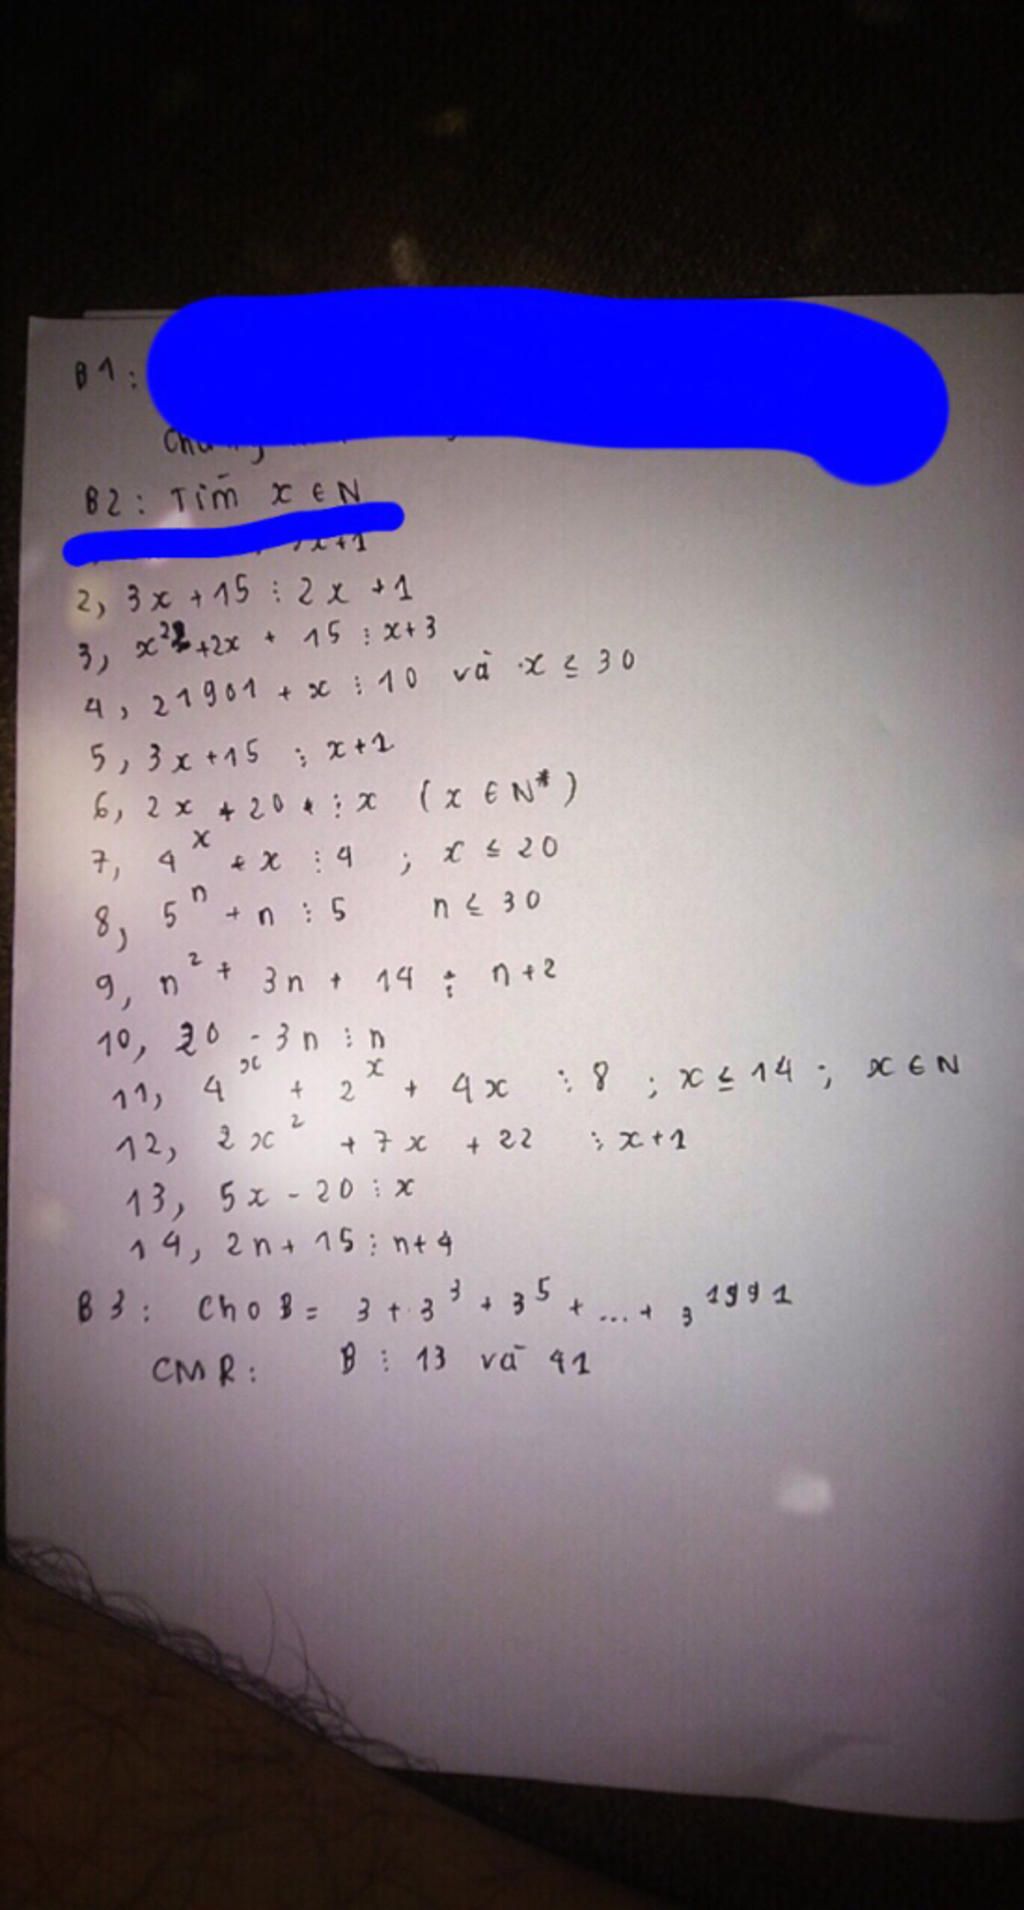 B1:
B2: Tìm x ∈ N
x+1
2, 3x + 15 ⋮ 2x + 1
3, x² + 2x + 15 ⋮ x + 3
4, 21901 + x ⋮ 10 và x ≤ 30
5, 3x + 15 ⋮ x + 1
6, 2x + 20 ⋮ x (x ∈ N*)
7, 4^x + x ⋮ 4 ; x ≤ 20
8, 5^n + n ⋮ 5 n ≤ 30
9, n² + 3n + 14 ⋮ n + 2
10, 20 - 3n ⋮ n
11, 4^x + 2^x + 4x ⋮ 8 ; x ≤ 14 ; x ∈ N
12, 2x² + 7x + 22 ⋮ x + 1
13, 5x - 20 ⋮ x
14, 2n + 15 ⋮ n + 4
B3: Cho B = 3 + 3³ + 3⁵ + ... + 3¹⁹⁹¹
CMR: B ⋮ 13 và 41